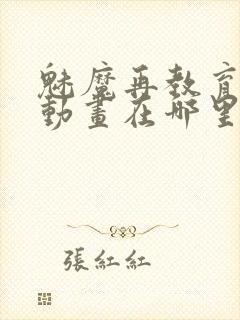 魅魔再教育
動畫在哪里
張紅紅